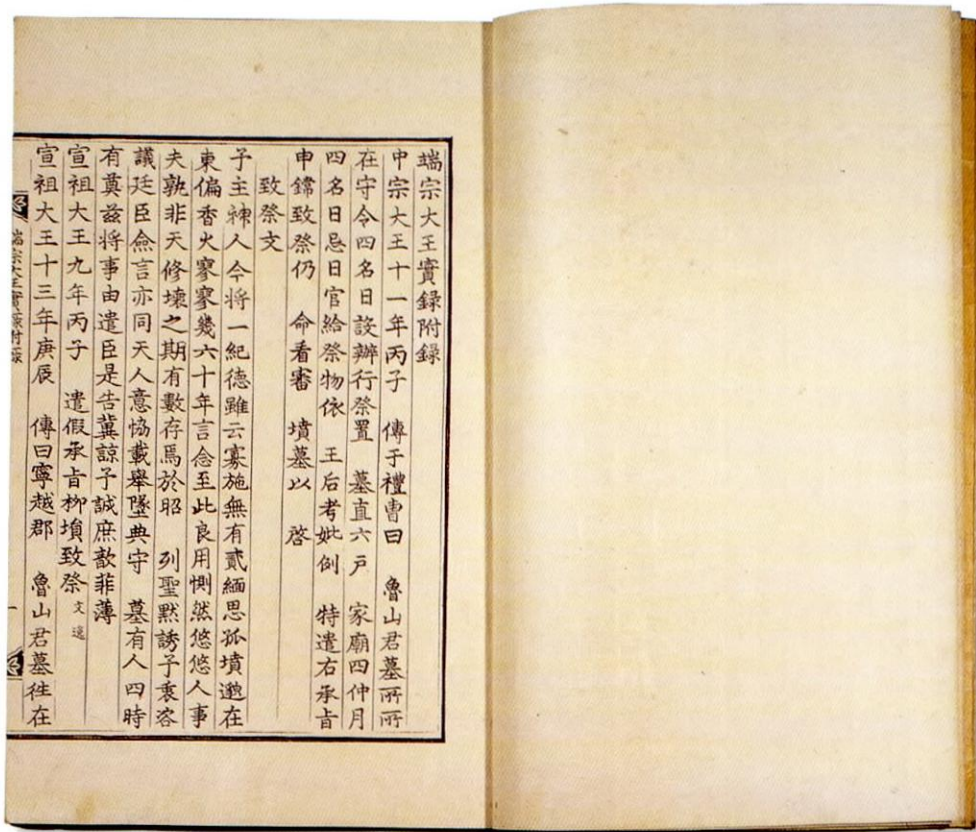 端宗大王實錄附錄
中宗大王十一年丙子 傳于禮曹曰 魯山君墓所所
在守令四名日設辦行祭置 墓直六戶 家廟四仲月
四名日忌日官給祭物依 王后考妣例 特遣右承旨
申鏛致祭仍 命看審 墳墓以 啓
致祭文
予主神人今將一紀德雖云寡施無有貳緬思孤墳邈在
東偏香火寥寥幾六十年言念至此良用惻然悠悠人事
夫孰非天修壞之期有數存焉於昭 列聖默誘予衷咨
議廷臣僉言亦同天人意協載舉墜典守 墓有人四時
有奠茲將事由遣臣是告冀諒予誠庶歆菲薄
宣祖大王九年丙子 遣假承旨柳塤致祭文逸
宣祖大王十三年庚辰 傳曰寧越郡 魯山君墓往在
端宗大王實錄附錄
一